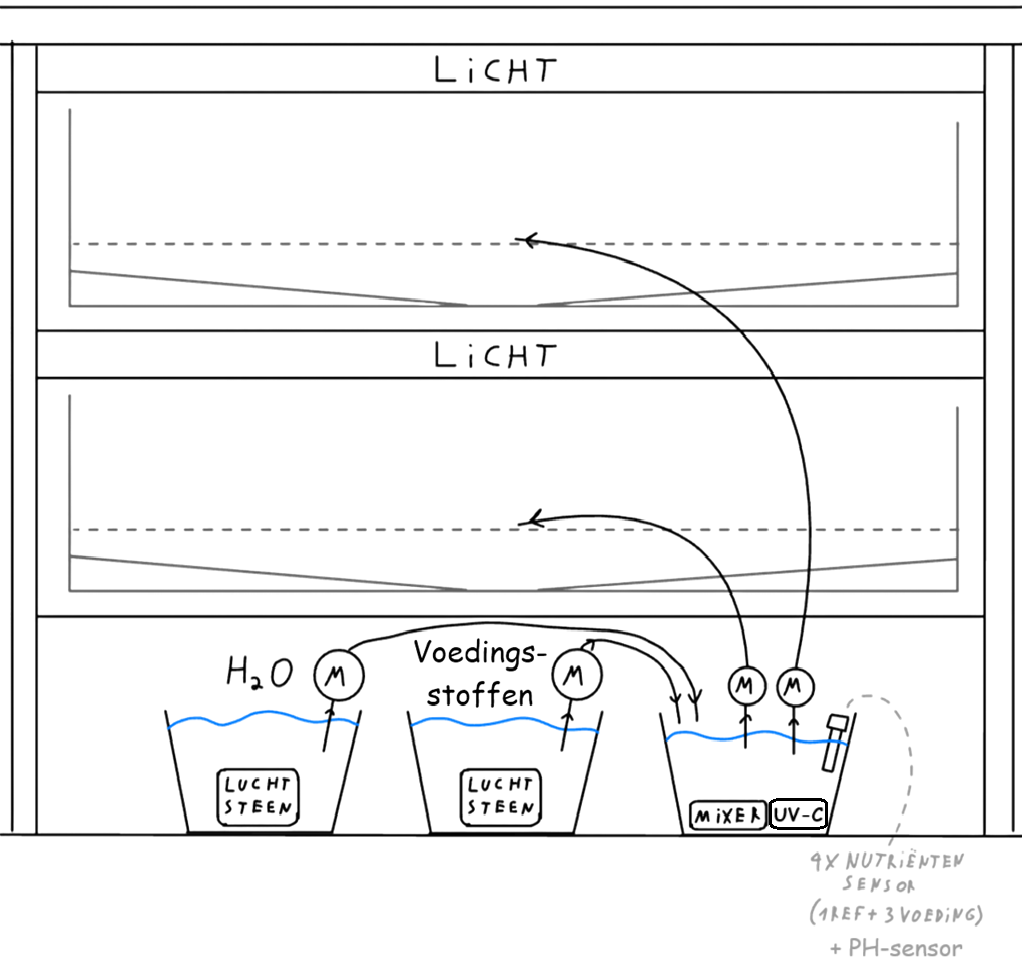 LiCHT
LiCHT
H₂O
M
Voedings-
stoffen
M
M
M
LUCHT
STEEN
LUCHT
STEEN
MiXER
UV-C
4X NUTRiËNTEN
SENSOR
(1REF + 3 VOEDiNG)
+ PH-sensor